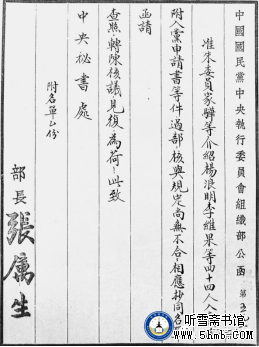 中國國民黨中央執行委員會組織部公函 第
准朱委員家驊等介紹楊浪明李維果等四十四人入
附入黨申請書等件過部核與規定尚無不合相應抄同名
函請
查照轉陳核議見復為荷此致
中央秘書處
附名單乙份
部長 張厲生
听雪斋书馆
www.5kmb.com
听雪斋书馆
www.5kmb.com